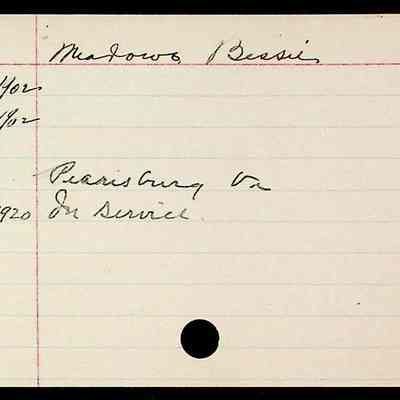 Meadows, Bessie
1902
1902
Pearisburg Va
1920 In service.